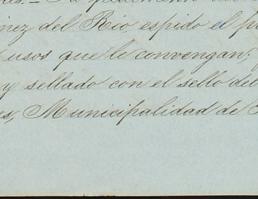 nez del Rio espido el p
usos que le convengan,
y sellado con el sello del
s, Municipalidad de